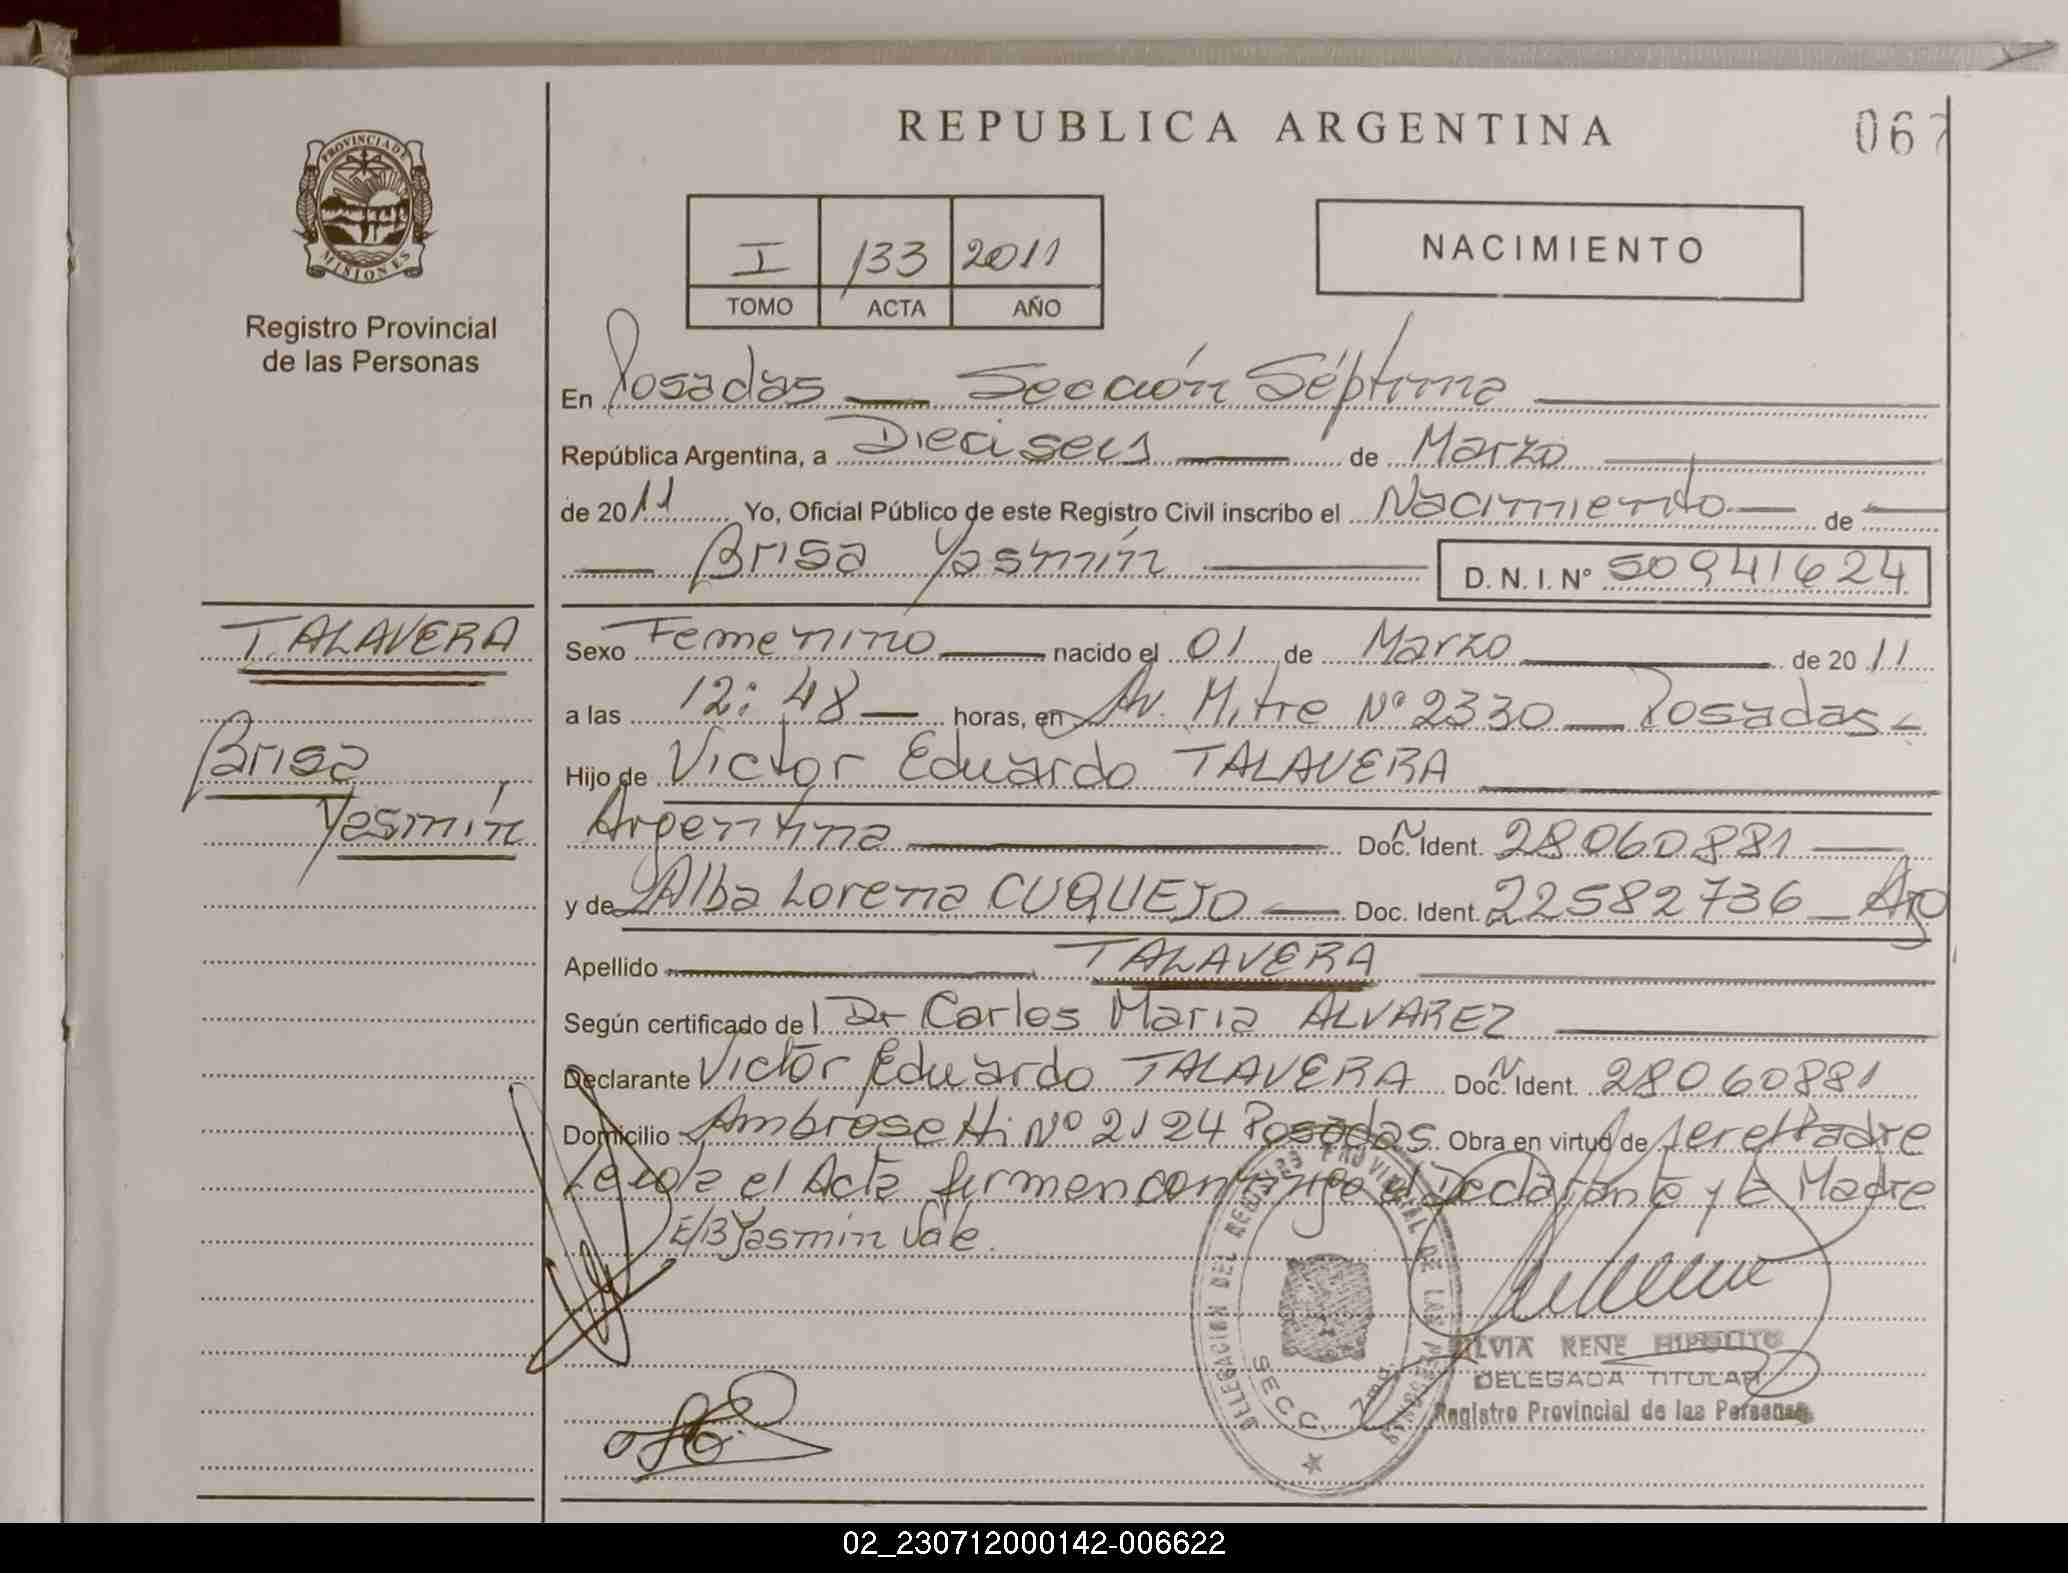 REPUBLICA ARGENTINA
067
PROVINCIA DE
MISIONES
Registro Provincial
de las Personas
I 133 2011
TOMO ACTA AÑO
NACIMIENTO
En Posadas — Sección Séptima
República Argentina, a Dieciseis de Marzo
de 2011 Yo, Oficial Público de este Registro Civil inscribo el Nacimiento de
Brisa Yasmín D. N. I. Nº 50941624
TALAVERA
Brisa
Yasmín
Sexo Femenino nacido el 01 de Marzo de 2011
a las 12:48 horas, en Av. Mitre Nº 2330 — Posadas -
Hijo de Victor Eduardo TALAVERA
Argentina Doc. N Ident. 28060881
y de Alba Lorena CUQUEJO — Doc. Ident. 22582736 — Arg
Apellido TALAVERA
Según certificado del Dr Carlos Maria ALVAREZ
Declarante Victor Eduardo TALAVERA Doc. N Ident. 28060881
Domicilio Ambrosetti Nº 2124 Posadas Obra en virtud de ser el Padre
Leida el Acta firman conmigo el Declarante y la Madre
E/B Yasmín Vale.
DELEGACION DEL REGISTRO PROVINCIAL DE LAS PERSONAS
SECC. 7ma.
SILVIA RENE HIPOLITO
DELEGADA TITULAR
Registro Provincial de las Personas
02_230712000142-006622